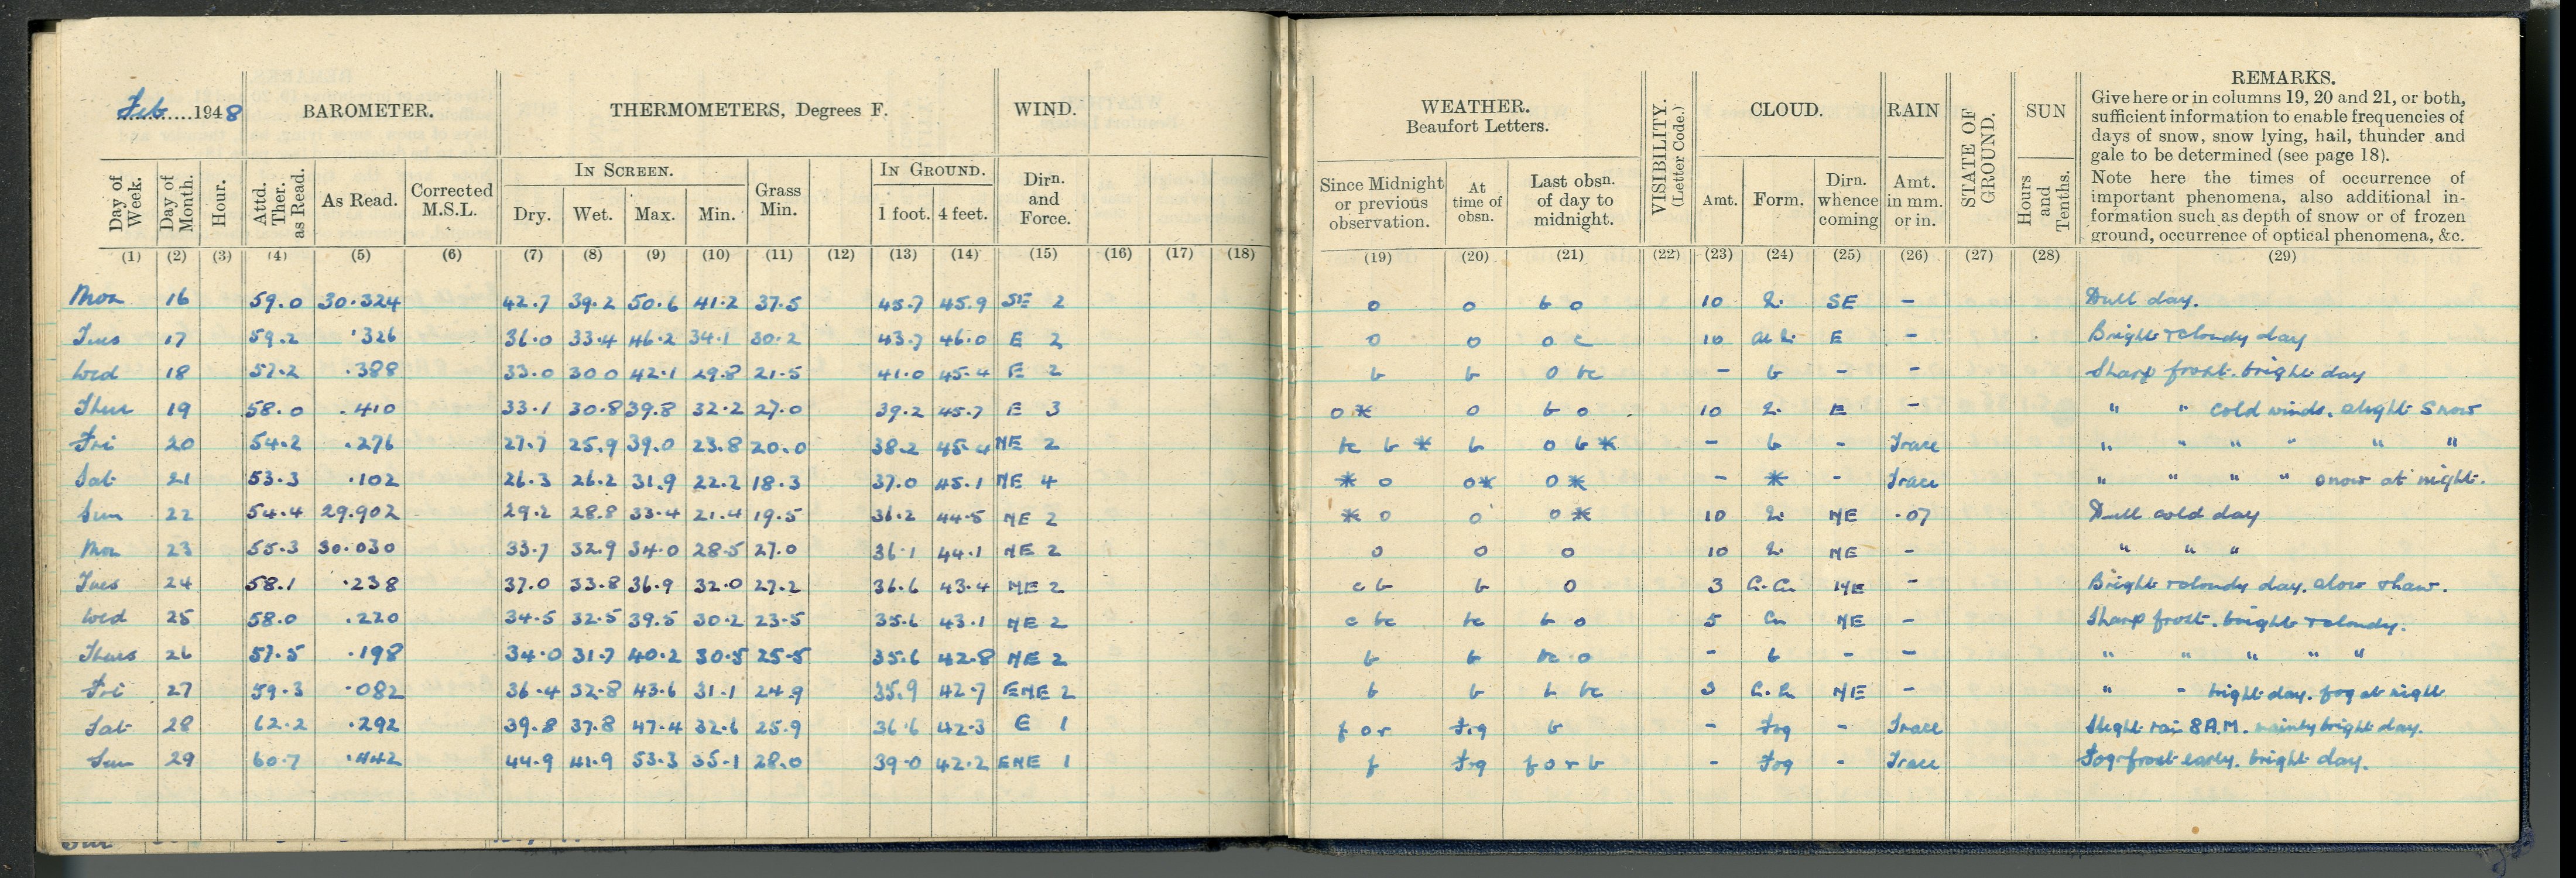 Feb 1948 BAROMETER. THERMOMETERS, Degrees F. WIND. WEATHER. Beaufort Letters. VISIBILITY. (Letter Code.) CLOUD. RAIN STATE OF GROUND. SUN REMARKS.
Give here or in columns 19, 20 and 21, or both,
sufficient information to enable frequencies of
days of snow, snow lying, hail, thunder and
gale to be determined (see page 18).
Note here the times of occurrence of
important phenomena, also additional in-
formation such as depth of snow or of frozen
ground, occurrence of optical phenomena, &c.
Day of Week. Day of Month. Hour. Attd. Ther. as Read. As Read. Corrected M.S.L. IN SCREEN. Dry. Wet. Max. Min. Grass Min. IN GROUND. 1 foot. 4 feet. Dirn. and Force. Since Midnight or previous observation. At time of obsn. Last obsn. of day to midnight. Amt. Form. Dirn. whence coming Amt. in mm. or in. Hours and Tenths.
(1) (2) (3) (4) (5) (6) (7) (8) (9) (10) (11) (12) (13) (14) (15) (16) (17) (18) (19) (20) (21) (22) (23) (24) (25) (26) (27) (28) (29)
Mon 16 59.0 30.324 42.7 39.2 50.6 41.2 37.5 45.7 45.9 SE 2 o o b o 10 SE - Dull day.
Tues 17 59.2 .326 36.0 33.4 46.2 34.1 30.2 43.7 46.0 E 2 o o o c 10 E - Bright & cloudy day
Wed 18 57.2 .388 33.0 30.0 42.1 29.8 21.5 41.0 45.4 E 2 b b o bc - b - - Sharp frost. bright day
Thur 19 58.0 .410 33.1 30.8 39.8 32.2 27.0 39.2 45.7 E 3 o * o b o 10 E - " " cold winds. slight snow
Fri 20 54.2 .276 27.7 25.9 39.0 23.8 20.0 38.2 45.4 NE 2 bc b * b o b * - b - Trace " " " " " "
Sat 21 53.3 .102 26.3 26.2 31.9 22.2 18.3 37.0 45.1 NE 4 * o o* o * - * - Trace " " " " snow at night.
Sun 22 54.4 29.902 29.2 28.8 33.4 21.4 19.5 36.2 44.5 NE 2 * o o o * 10 NE .07 Dull cold day
Mon 23 55.3 30.030 33.7 32.9 34.0 28.5 27.0 36.1 44.1 NE 2 o o o 10 NE - " " "
Tues 24 58.1 .238 37.0 33.8 36.9 32.0 27.2 36.6 43.4 NE 2 c b b o 3 NE - Bright & cloudy day. slow thaw.
Wed 25 58.0 .220 34.5 32.5 39.5 30.2 23.5 35.6 43.1 NE 2 c bc bc b o 5 Cu NE - Sharp frost. bright & cloudy.
Thurs 26 57.5 .198 34.0 31.7 40.2 30.5 25.5 35.6 42.8 NE 2 b b bc o - b - - " " " " "
Fri 27 59.3 .082 36.4 32.8 43.6 31.1 24.9 35.9 42.7 ENE 2 b b b bc 3 NE - " " bright day. fog at night
Sat 28 62.2 .292 39.8 37.8 47.4 32.6 25.9 36.6 42.3 E 1 f o r Fog b - Fog - Trace Slight rain 8 A.M. mainly bright day.
Sun 29 60.7 .442 44.9 41.9 53.3 35.1 28.0 39.0 42.2 ENE 1 f Fog f o r b - Fog - Trace Fog & frost early. bright day.